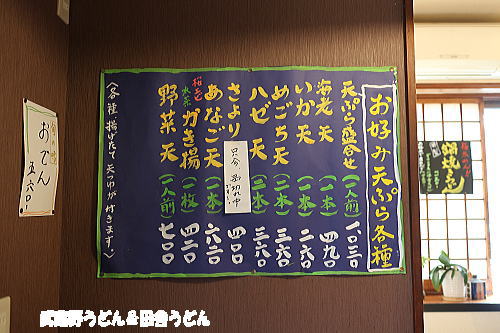 お好み天ぷら各種
天ぷら盛合せ(一人前)一〇三〇
海老天(一本)四九〇
いか天(一本)二六〇
めごち天(二本)三六〇
ハゼ天(二本)三八〇
さより(二本)四〇〇
只今 品切れ中
あなご天(一本)六二〇
桜えび 水菜 かき揚(一枚)四二〇
野菜天(一人前)七〇〇
〈各種、揚げたて天つゆが付きます。〉
おでん
五六〇
鍋焼うどん
武蔵野うどん&田舎うどん